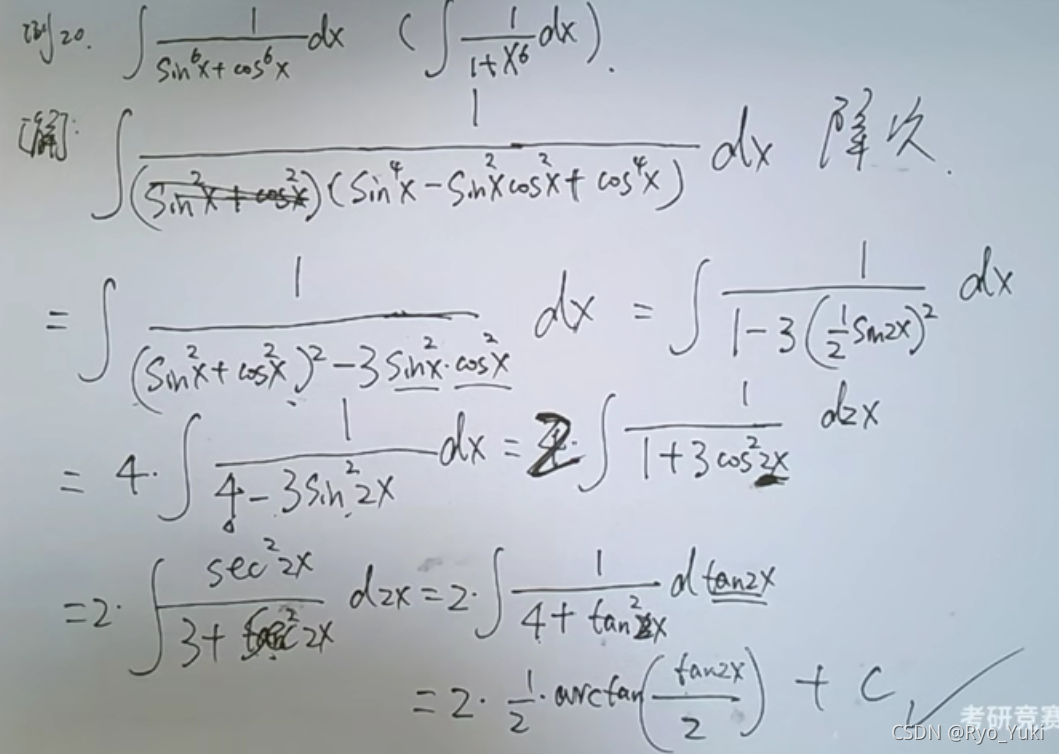 例20. ∫ 1/(sin⁶x + cos⁶x) dx ( ∫ 1/(1+x⁶) dx ).
[解]: ∫ 1/((sin²x + cos²x)(sin⁴x − sin²x cos²x + cos⁴x)) dx 降次.
= ∫ 1/((sin²x + cos²x)² − 3 sin²x · cos²x) dx = ∫ 1/(1 − 3(½ sin2x)²) dx
= 4 · ∫ 1/(4 − 3 sin²2x) dx = 2 · ∫ 1/(1 + 3 cos²2x) d2x
= 2 · ∫ sec²2x/(3 + sec²2x) d2x = 2 · ∫ 1/(4 + tan²2x) d tan2x
= 2 · ½ · arctan(tan2x/2) + C
考研竞赛
CSDN @Ryo_Yuki